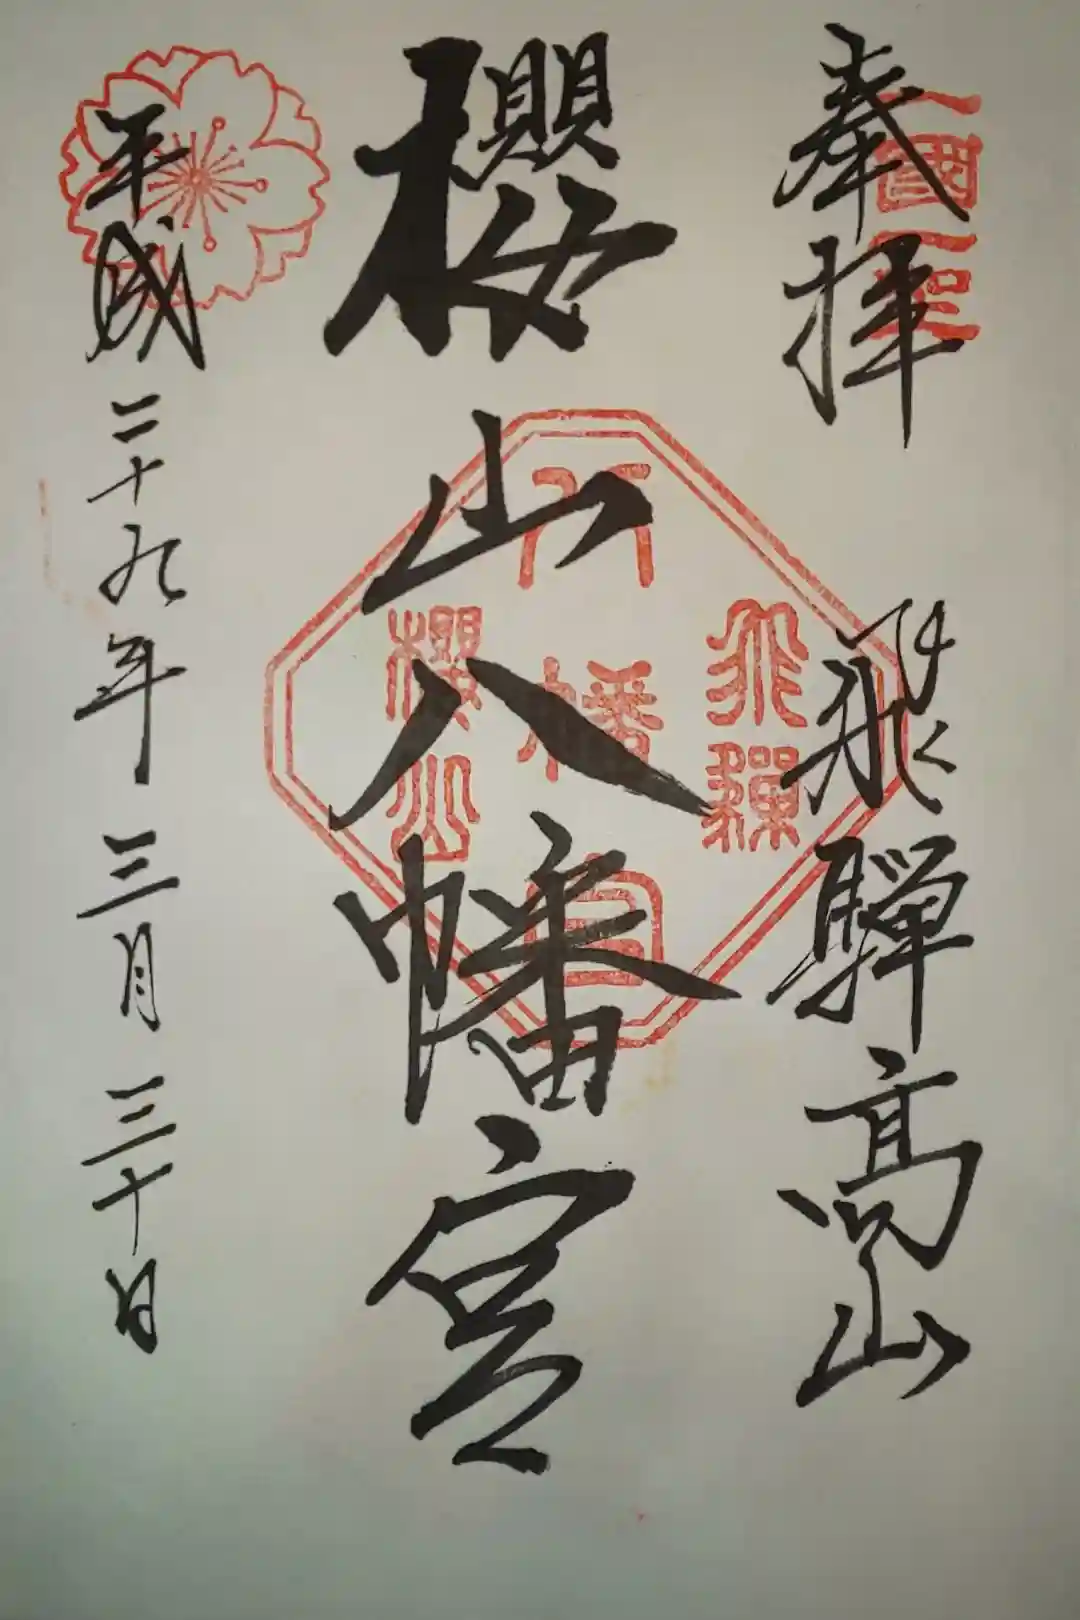 奉拝
飛驒高山
一国一宮
櫻山八幡宮
飛驒
八幡宮
櫻山
平成二十九年三月三十日